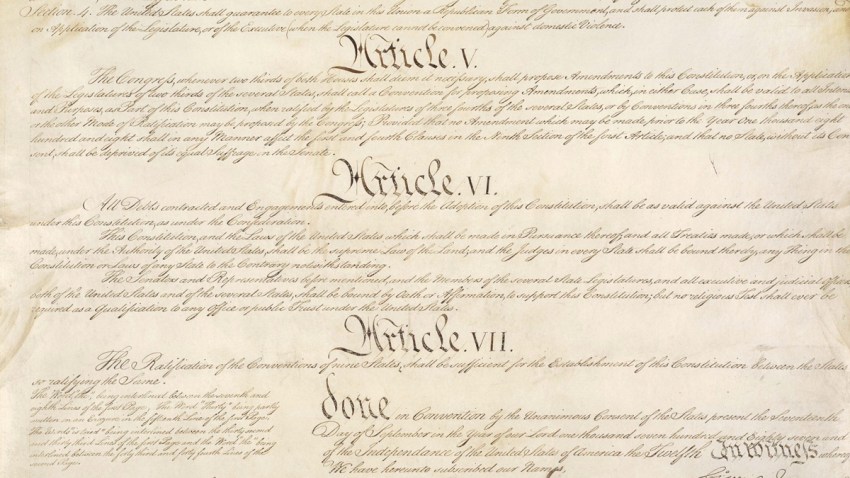 Section. 4. The United States shall guarantee to every State in this Union a Republican Form of Government, and shall protect each of them against Invasion; and
on Application of the Legislature, or of the Executive (when the Legislature cannot be convened) against domestic Violence.
Article. V.
The Congress, whenever two thirds of both Houses shall deem it necessary, shall propose Amendments to this Constitution, or, on the Application
of the Legislatures of two thirds of the several States, shall call a Convention for proposing Amendments, which, in either Case, shall be valid to all Intents
and Purposes, as Part of this Constitution, when ratified by the Legislatures of three fourths of the several States, or by Conventions in three fourths thereof, as the one
or the other Mode of Ratification may be proposed by the Congress; Provided that no Amendment which may be made prior to the Year One thousand eight
hundred and eight shall in any Manner affect the first and fourth Clauses in the Ninth Section of the first Article; and that no State, without its Con
sent, shall be deprived of its equal Suffrage in the Senate.
Article. VI.
All Debts contracted and Engagements entered into, before the Adoption of this Constitution, shall be as valid against the United States
under this Constitution, as under the Confederation.
This Constitution, and the Laws of the United States which shall be made in Pursuance thereof; and all Treaties made, or which shall be
made, under the Authority of the United States, shall be the supreme Law of the Land; and the Judges in every State shall be bound thereby, any Thing in the
Constitution or Laws of any State to the Contrary notwithstanding.
The Senators and Representatives before mentioned, and the Members of the several State Legislatures, and all executive and judicial Officers,
both of the United States and of the several States, shall be bound by Oath or Affirmation, to support this Constitution; but no religious Test shall ever be
required as a Qualification to any Office or public Trust under the United States.
Article. VII.
The Ratification of the Conventions of nine States, shall be sufficient for the Establishment of this Constitution between the States
so ratifying the Same.
The Word, "the," being interlined between the seventh and
eighth Lines of the first Page, The Word "Thirty" being partly
written on an Erazure in the fifteenth Line of the first Page,
The Words "is tried" being interlined between the thirty second
and thirty third Lines of the first Page and the Word "the" being
interlined between the forty third and forty fourth Lines of the
second Page.
done in Convention by the Unanimous Consent of the States present the Seventeenth
Day of September in the Year of our Lord one thousand seven hundred and Eighty seven and
of the Independance of the United States of America the Twelfth In witness whereof
We have hereunto subscribed our Names,